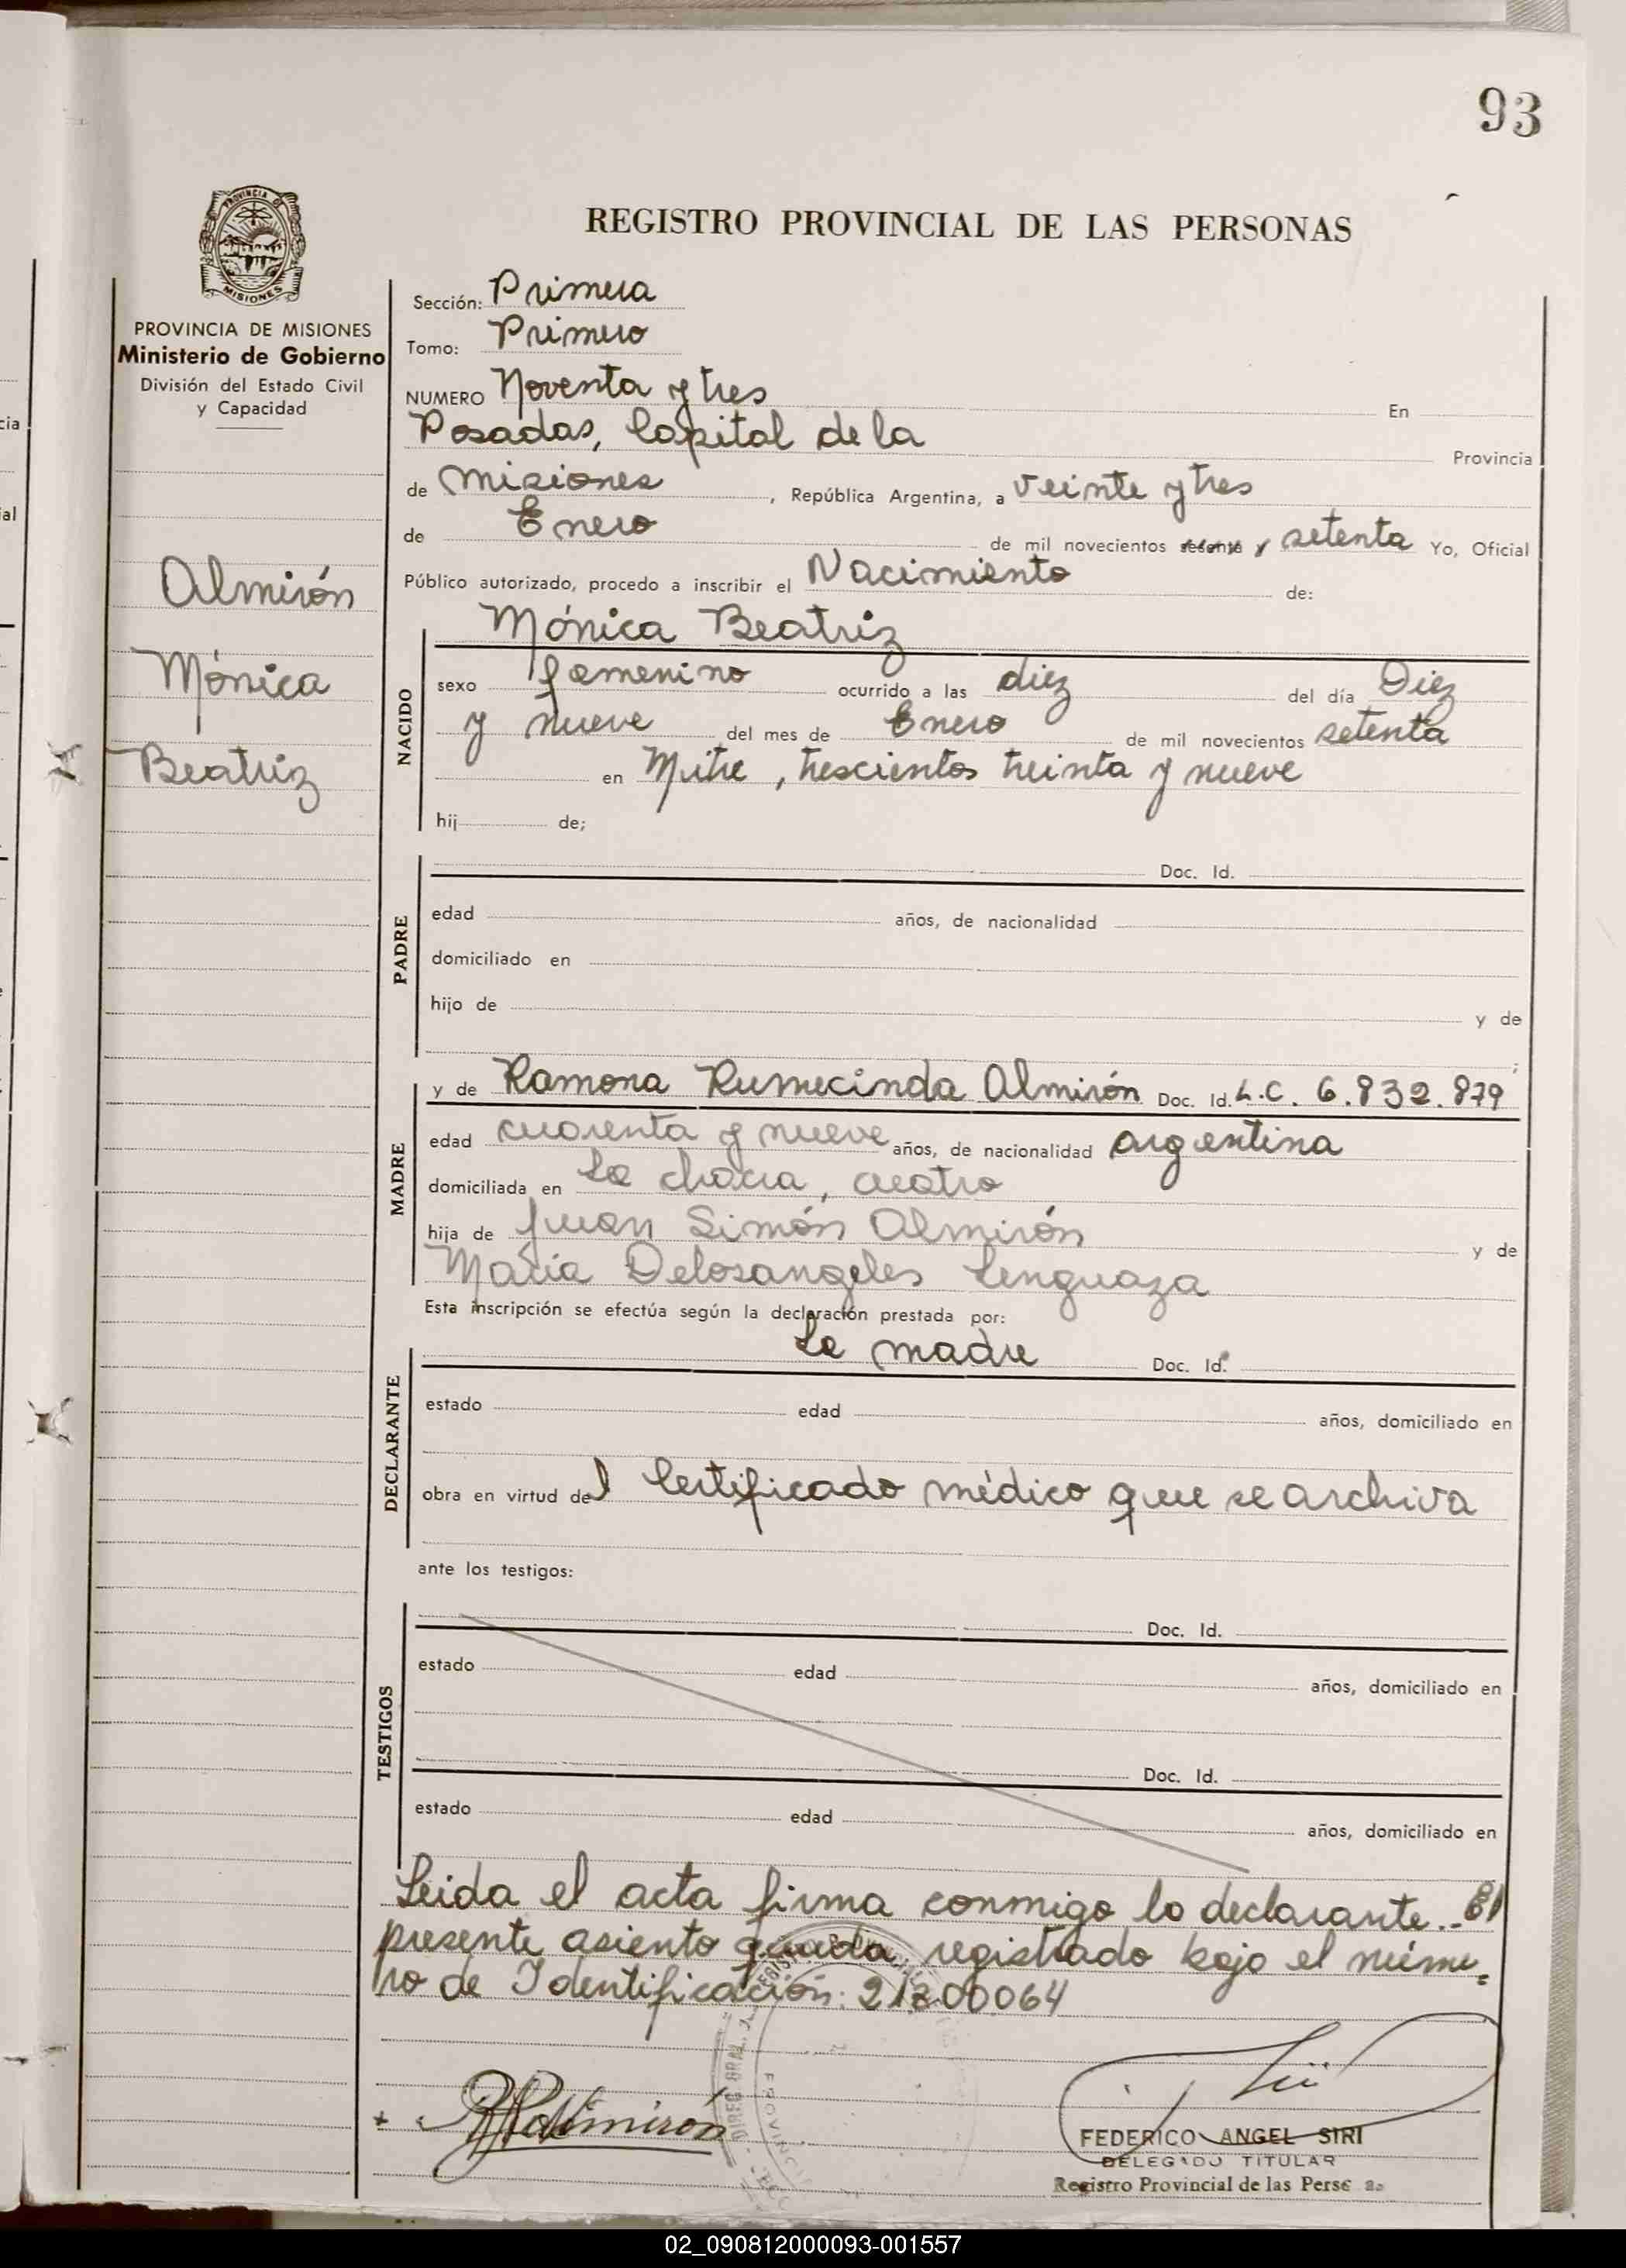 93
REGISTRO PROVINCIAL DE LAS PERSONAS
PROVINCIA DE
MISIONES
PROVINCIA DE MISIONES
Ministerio de Gobierno
División del Estado Civil
y Capacidad
Almirón
Mónica
Beatriz
Sección: Primera
Tomo: Primero
NUMERO Noventa y tres En
Posadas, Capital de la Provincia
de Misiones, República Argentina, a veinte y tres
de Enero de mil novecientos sesenta y setenta Yo, Oficial
Público autorizado, procedo a inscribir el Nacimiento de:
NACIDO
Mónica Beatriz
sexo femenino ocurrido a las diez del día Diez
y nueve del mes de Enero de mil novecientos setenta
en Mitre, trescientos treinta y nueve
hij de;
PADRE
Doc. Id.
edad años, de nacionalidad
domiciliado en
hijo de y de
;
MADRE
y de Ramona Rumecinda Almirón Doc. Id. L.C. 6.832.879
edad cuarenta y nueve años, de nacionalidad argentina
domiciliada en La chacra, cuatro
hija de Juan Simón Almirón y de
María Delosangeles Lenguaza
Esta inscripción se efectúa según la declaración prestada por:
DECLARANTE
La madre Doc. Id.
estado edad años, domiciliado en
obra en virtud del Certificado médico que se archiva
ante los testigos:
TESTIGOS
Doc. Id.
estado edad años, domiciliado en
Doc. Id.
estado edad años, domiciliado en
Leida el acta firma conmigo la declarante.- El
presente asiento queda registrado bajo el núme-
ro de Identificación: 21300064
Almirón
FEDERICO ANGEL SIRI
DELEGADO TITULAR
Registro Provincial de las Perse as
02_090812000093-001557